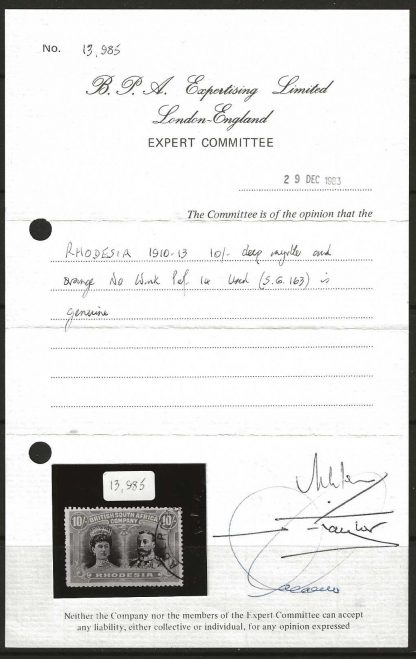 No. 13,985
B. P. A. Expertising Limited
London-England
EXPERT COMMITTEE
29 DEC 1983
The Committee is of the opinion that the
RHODESIA 1910-13 10/- deep myrtle and
orange No Wmk Perf 14 Used (S.G. 163) is
genuine
13,985
10/- BRITISH SOUTH AFRICA COMPANY 10/-
RHODESIA
Neither the Company nor the members of the Expert Committee can accept
any liability, either collective or individual, for any opinion expressed